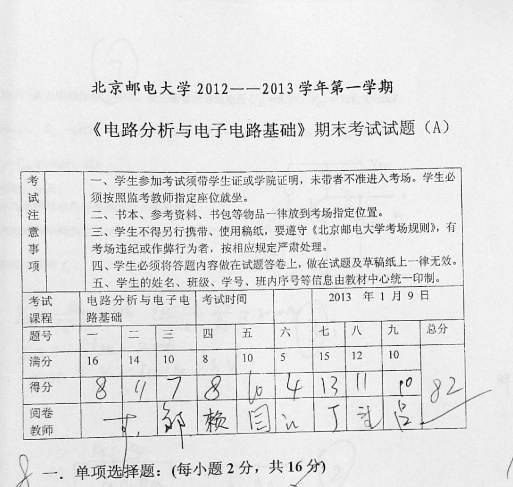 北京邮电大学2012——2013学年第一学期
《电路分析与电子电路基础》期末考试试题（A）
考试注意事项
一、学生参加考试须带学生证或学院证明，未带者不准进入考场。学生必
须按照监考教师指定座位就坐。
二、书本、参考资料、书包等物品一律放到考场指定位置。
三、学生不得另行携带、使用稿纸，要遵守《北京邮电大学考场规则》，有
考场违纪或作弊行为者，按相应规定严肃处理。
四、学生必须将答题内容做在试题答卷上，做在试题及草稿纸上一律无效。
五、学生的姓名、班级、学号、班内序号等信息由教材中心统一印制。
考试课程 电路分析与电子电路基础 考试时间 2013 年 1 月 9 日
题号 一 二 三 四 五 六 七 八 九 总分
满分 16 14 10 8 10 5 15 12 10
得分 8 11 7 8 10 4 13 11 10 82
阅卷教师 邹 赖 国 丁
8 一．单项选择题：(每小题 2 分，共 16 分)